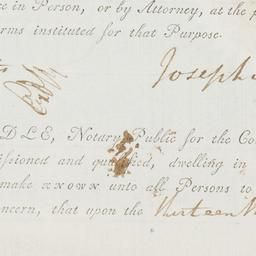 ce in Person, or by Attorney, at the p
orms instituted for that Purpose.
Joseph
DLE, Notary Public for the Co
issioned and qualified, dwelling in
make KNOWN unto all Persons to
oncern, that upon the thirteen